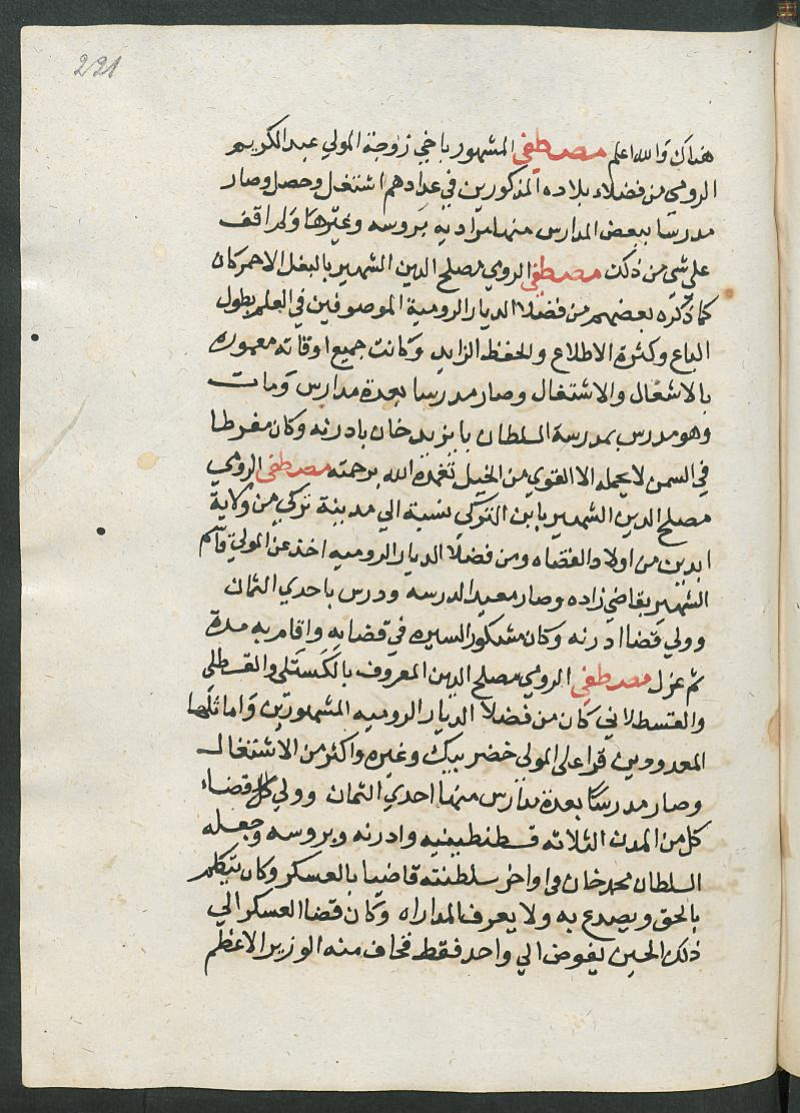 221
هناك والله اعلم مصطفي المشهور باخي زوجة المولي عبد الكريم
الرومي من فضلاء بلاده المذكورين في عدادهم اشتغل وحصل وصار
مدرسا ببعض المدارس منها مراديه بروسه وغيرها ولم اقف
علي شي من ذلك مصطفي الرومي مصلح الدين الشهير بالبغل الاحمر كان
كما ذكره بعضهم من فضلا الديار الرومية الموصوفين في العلم بطول
الباع وكثرة الاطلاع والحفظ الزايد وكانت جميع اوقاته معموره
بالاشغال والاشتغال وصار مدرسا بعدة مدارس ومات
وهو مدرس بمدرسة السلطان بايزيد خان بادرنه وكان مفرطا
في السمن لا يحمله الا القوي من الخيل تغمده الله برحمته مصطفي الرومي
مصلح الدين الشهير بابن التركي نسبة الي مدينة تركي من ولاية
ايدين من اولاد القضاه ومن فضلا الديار الروميه اخذ عن المولي قاسم
الشهير بقاضي زاده وصار معيد الدرسه ودرس باحدي الثمان
وولي قضا ادرنه وكان مشكور السيره في قضايه واقام به مدة
ثم عزل مصطفي الرومي مصلح الدين المعروف بالكستلي والقسطلي
والقسطلاني كان من فضلا الديار الروميه المشهورين واماثلها
المعدودين قرا علي المولي خضر بيك وغيره واكثر من الاشتغال
وصار مدرسا بعدة مدارس منها احدي الثمان وولي قضاء
كل من المدن الثلاثه قسطنطينيه وادرنه وبروسه وجعله
السلطان محمد خان في اواخر سلطنته قاضيا بالعسكر وكان يتكلم
بالحق ويصدع به ولا يعرف المداراه وكان قضا العسكر الي
ذلك الحين يفوض الي واحد فقط فخاف منه الوزير الاعظم